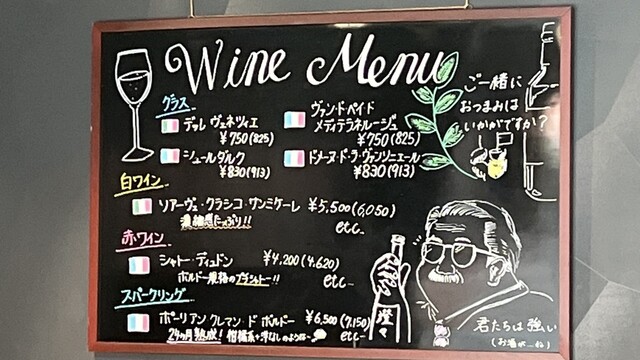 Wine Menu
グラス
デッレ ヴェネツィエ
¥750(825)
ヴァン・ド・ペイド
メディテラネルージュ
¥750(825)
シュールダルク
¥830(913)
ドメーヌ・ド・ラ・ヴァンソニエール
¥830(913)
ご一緒に
おつまみは
いかがですか?
白ワイン
ソアーヴェ・クラシコ・サンミケーレ ¥5,500(6,050)
濃縮感たっぷり!! etc..
赤ワイン
シャトー・デュドン ¥4,200(4,620)
ボルドー規格のプチシャトー!! etc..
スパークリング
ボーリアン クレマン ド ボルドー ¥6,500(7,150)
24ヶ月熟成! 柑橘系や洋なしのような〜 etc..
澄々
君たちは強い
(お酒が…ね)